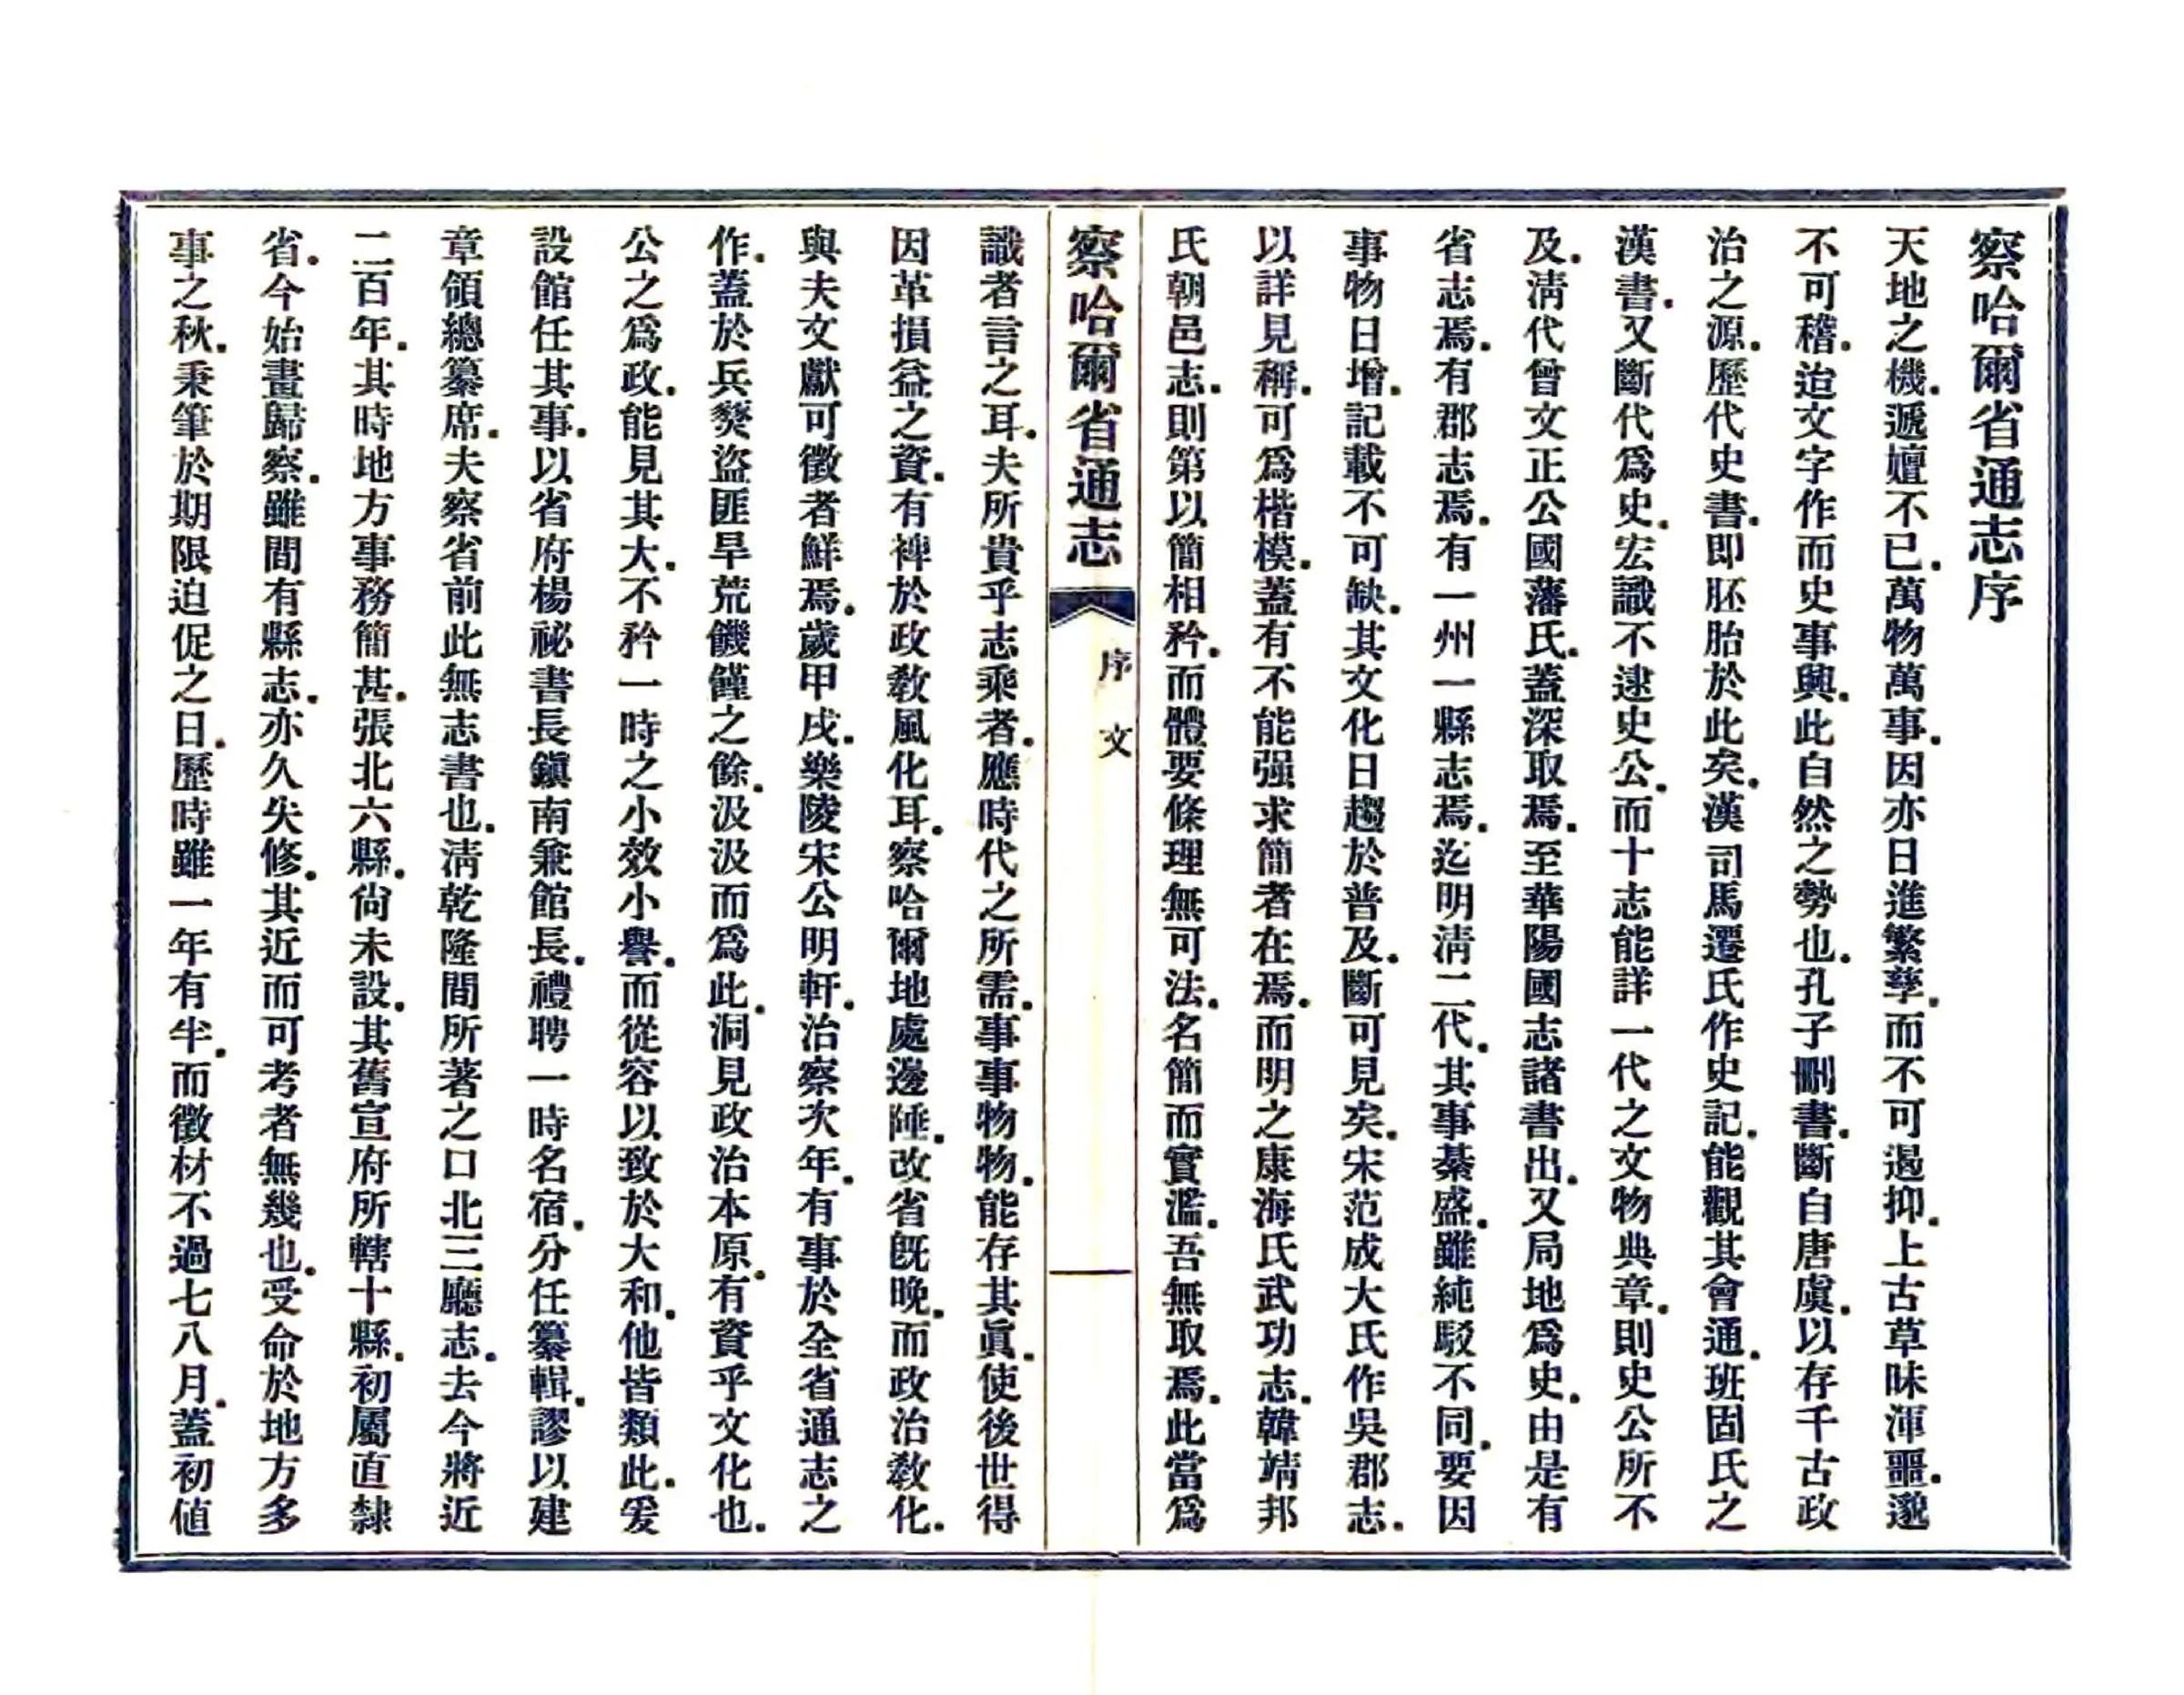 察哈爾省通志序
天地之機．遞嬗不已．萬物萬事．因亦日進繁孳．而不可遏抑．上古草昧渾噩．邈
不可稽．迨文字作而史事興．此自然之勢也．孔子刪書．斷自唐虞．以存千古政
治之源．歷代史書．即胚胎於此矣．漢司馬遷氏作史記．能觀其會通．班固氏之
漢書．又斷代爲史．宏識不逮史公．而十志能詳一代之文物典章．則史公所不
及．淸代曾文正公國藩氏．蓋深取焉．至華陽國志諸書出．又局地爲史．由是有
省志焉．有郡志焉．有一州一縣志焉．迄明淸二代．其事綦盛．雖純駁不同．要因
事物日增．記載不可缺．其文化日趨於普及．斷可見矣．宋范成大氏作吳郡志．
以詳見稱．可爲楷模．蓋有不能强求簡者在焉．而明之康海氏武功志．韓靖邦
氏朝邑志．則第以簡相矜．而體要條理無可法．名簡而實濫．吾無取焉．此當爲
察哈爾省通志
序文
一
識者言之耳．夫所貴乎志乘者．應時代之所需．事事物物．能存其眞．使後世得
因革損益之資．有裨於政敎風化耳．察哈爾地處邊陲．改省旣晚．而政治敎化．
與夫文獻可徵者鮮焉．歲甲戌．樂陵宋公明軒．治察次年．有事於全省通志之
作．蓋於兵燹盜匪旱荒饑饉之餘．汲汲而爲此．洞見政治本原．有資乎文化也．
公之爲政．能見其大．不矜一時之小效小譽．而從容以致於大和．他皆類此．爰
設館任其事．以省府楊祕書長鎭南兼館長．禮聘一時名宿．分任纂輯．謬以建
章領總纂席．夫察省前此無志書也．淸乾隆間所著之口北三廳志．去今將近
二百年．其時地方事務簡甚．張北六縣．尙未設．其舊宣府所轄十縣．初屬直隸
省．今始畫歸察．雖間有縣志．亦久失修．其近而可考者無幾也．受命於地方多
事之秋．秉筆於期限迫促之日．歷時雖一年有半．而徵材不過七八月．蓋初値